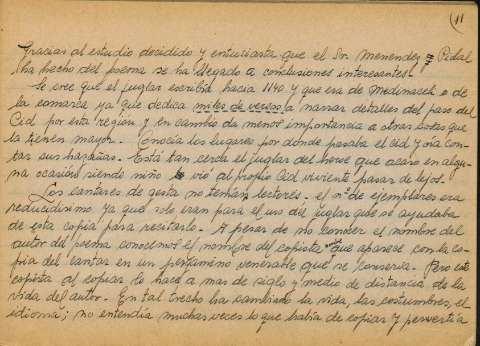 11
Gracias al estudio decidido y entusiasta que el Sr. Menendez = Pidal
ha hecho del poema se ha llegado a conclusiones interesantes.
Se cree que el juglar escribía hacia 1140 y que era de Medinaceli o de
la comarca ya que dedica miles de versos a narrar detalles del paso del
Cid por esta región y en cambio da menos importancia a otras partes que
la tienen mayor. - Conocía los lugares por donde pasaba el cid y oía con-
tar sus hazañas. - Está tan cerca el juglar del heroe que acaso en algu-
na ocasión siendo niño vió al propio cid viviente pasar de lejos.
Los cantares de gesta no tenían lectores. el nº de ejemplares era
reducidisimo ya que solo eran para el uso del juglar que se ayudaba
de esta copia para recitarlo. - A pesar de no conocer el nombre del
autor del poema conocemos el nombre del copista que aparece con la co-
pia del cantar en un pergamino venerable que se conserva. - Pero este
copista al copiar lo hace a mas de siglo y medio de distancia de la
vida del autor. - En tal trecho ha cambiado la vida, las costumbres, el
idioma; no entendía muchas veces lo que había de copiar y pervertía